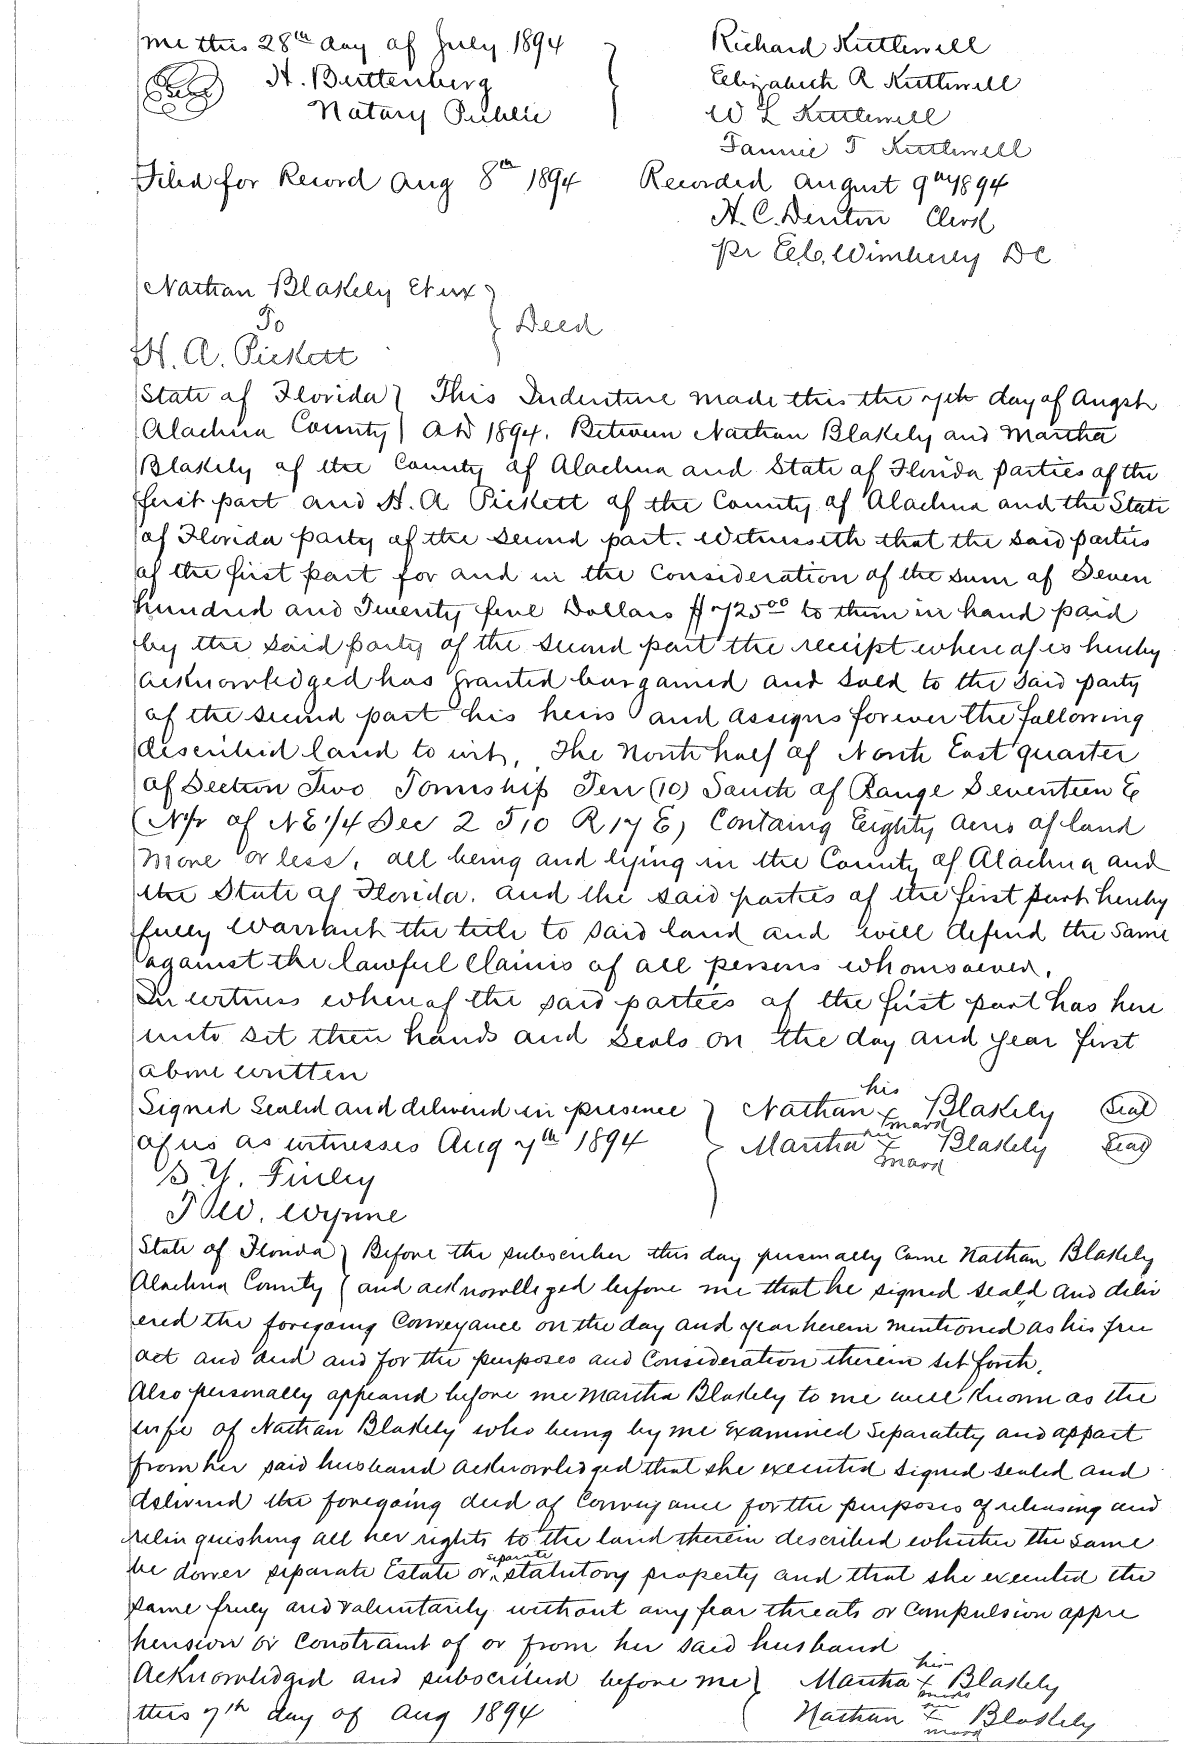 me this 28th day of July 1894 } Richard Kuttewell
H. Buttenberg Elizabeth R Kuttewell
Notary Public W L Kuttewell
Fannie T Kuttewell
Filed for Record Aug 8th 1894 Recorded August 9th 1894
H. C. Denton Clerk
pr E.C. Wimberly DC
Nathan Blakely et ux }
To } Deed
H. A. Pickett
State of Florida } This Indenture made this the 7th day of Augst
Alachua County } AD 1894. Between Nathan Blakely and Martha
Blakely of the County of Alachua and State of Florida parties of the
first part and H. A Pickett of the County of Alachua and the State
of Florida party of the second part. Witnesseth that the said parties
of the first part for and in the Consideration of the sum of Seven
hundred and Twenty five Dollars $725 00 to them in hand paid
by the said party of the second part the receipt whereof is hereby
acknowledged has granted bargained and sold to the said party
of the second part his heirs and assigns forever the following
described land to wit, The North half of North East quarter
of Section Two Township Ten (10) South of Range Seventeen E
(N½ of NE 1/4 Sec 2 T10 R17E) Containg Eighty acres of land
more or less, all being and lying in the County of Alachua and
the State of Florida. and the said parties of the first part hereby
fully warrant the title to said land and will defend the same
against the lawful claims of all persons whomsoever.
In witness whereof the said parties of the first part has here
unto set their hands and seals on the day and year first
above written
Signed Sealed and delivered in presence } Nathan his x mark Blakely Seal
of us as witnesses Aug 7th 1894 } Martha her x mark Blakely Seal
B. Y. Finley
T. W. Wynne
State of Florida } Before the subscriber this day personally came Nathan Blakely
Alachua County } and acknowlleged before me that he signed seald and deliv
ered the foregoing Conveyance on the day and year herein mentioned as his free
act and deed and for the purposes and Consideration therein set forth.
Also personally appeared before me Martha Blakely to me well known as the
wife of Nathan Blakely who being by me Examined Separately and appart
from her said husband acknowledged that she executed signed sealed and
delivered the foregoing deed of Conveyance for the purposes of releasing and
relinquishing all her rights to the land therein described whether the same
be dower separate Estate or separate statutory property and that she executed the
same freely and voluntarily without any fear threats or Compulsion appre
hension or Constraint of or from her said husband
Acknowledged and subscribed before me } Martha her x mark Blakely
this 7th day of Aug 1894 } Nathan his x mark Blakely